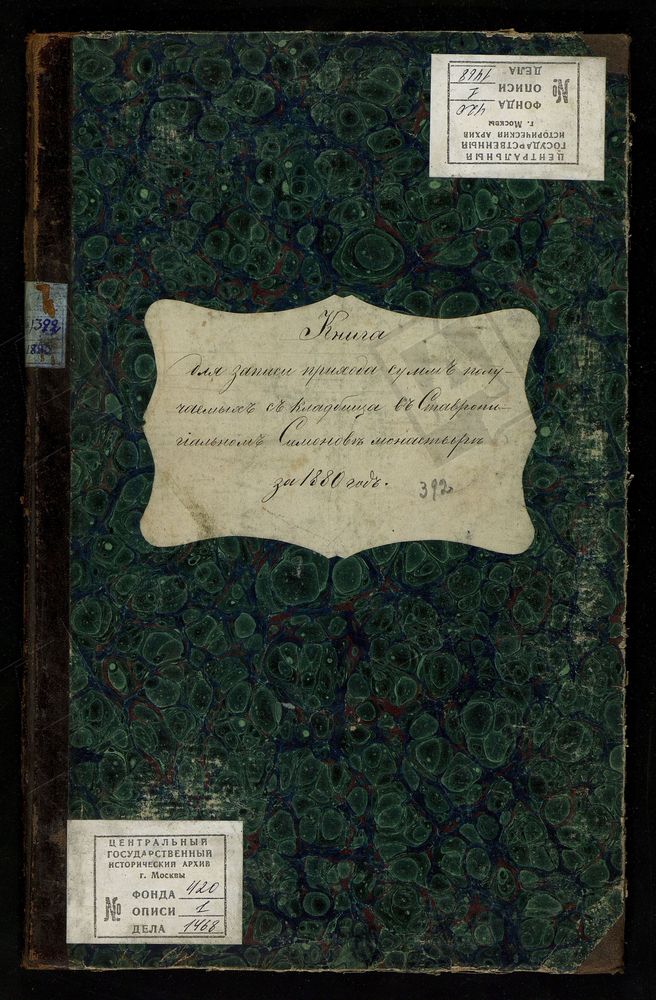 ЦЕНТРАЛЬНЫЙ
ГОСУДАРСТВЕННЫЙ
ИСТОРИЧЕСКИЙ АРХИВ
г. Москвы
№
ФОНДА 420
ОПИСИ 1
ДЕЛА 1468
1392
Книга
для записи прихода суммъ полу-
чаемыхъ съ кладбища въ Ставропи-
гіальномъ Симоновѣ монастырѣ
за 1880 годъ.
392
ЦЕНТРАЛЬНЫЙ
ГОСУДАРСТВЕННЫЙ
ИСТОРИЧЕСКИЙ АРХИВ
г. Москвы
№
ФОНДА 420
ОПИСИ 1
ДЕЛА 1468